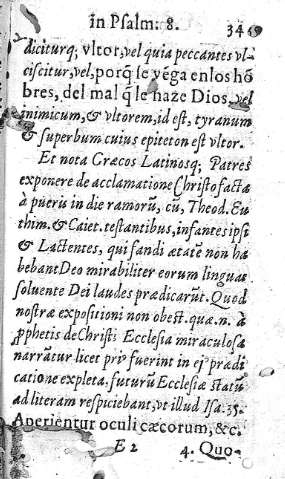 in Psalm: 8. 349
diciturq; vltor, vel quia peccantes vl-
ciscitur, vel, porq̃ se vẽga enlos hõ
bres, del mal q̃ le haze Dios, vel
inimicum, & vltorem, id est, tyranum
& superbum cuius epiteton est vltor.
Et nota Græcos Latinosq; Patres
exponere de acclamatione Christo facta
à pueris in die ramorũ, cũ, Theod. Eu
thim. & Caiet. testantibus, infantes ipsi
& Lactentes, qui fandi ætatẽ non ha
bebant Deo mirabiliter eorum linguas
soluente Dei laudes prædicarũt. Quod
nostræ expositioni non obest. quæ. n. à
ꝓphetis de Christi Ecclesia miraculosa
narrãtur licet pri⁹ fuerint in ei⁹ prædi
catione expleta. futurũ Ecclesiæ statũ
ad literam respiciebant, vt illud Isa. 35.
Aperientur oculi cæcorum, &c.
E 2 4. Quo-